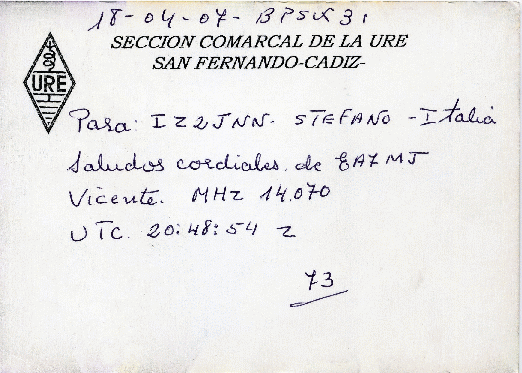 18-04-07- BPSK31
SECCION COMARCAL DE LA URE
SAN FERNANDO-CADIZ-
URE
Para: IZ2JNN- STEFANO -Italia
Saludos cordiales de EA7MJ
Vicente. MHz 14.070
UTC. 20:48:54 z
73